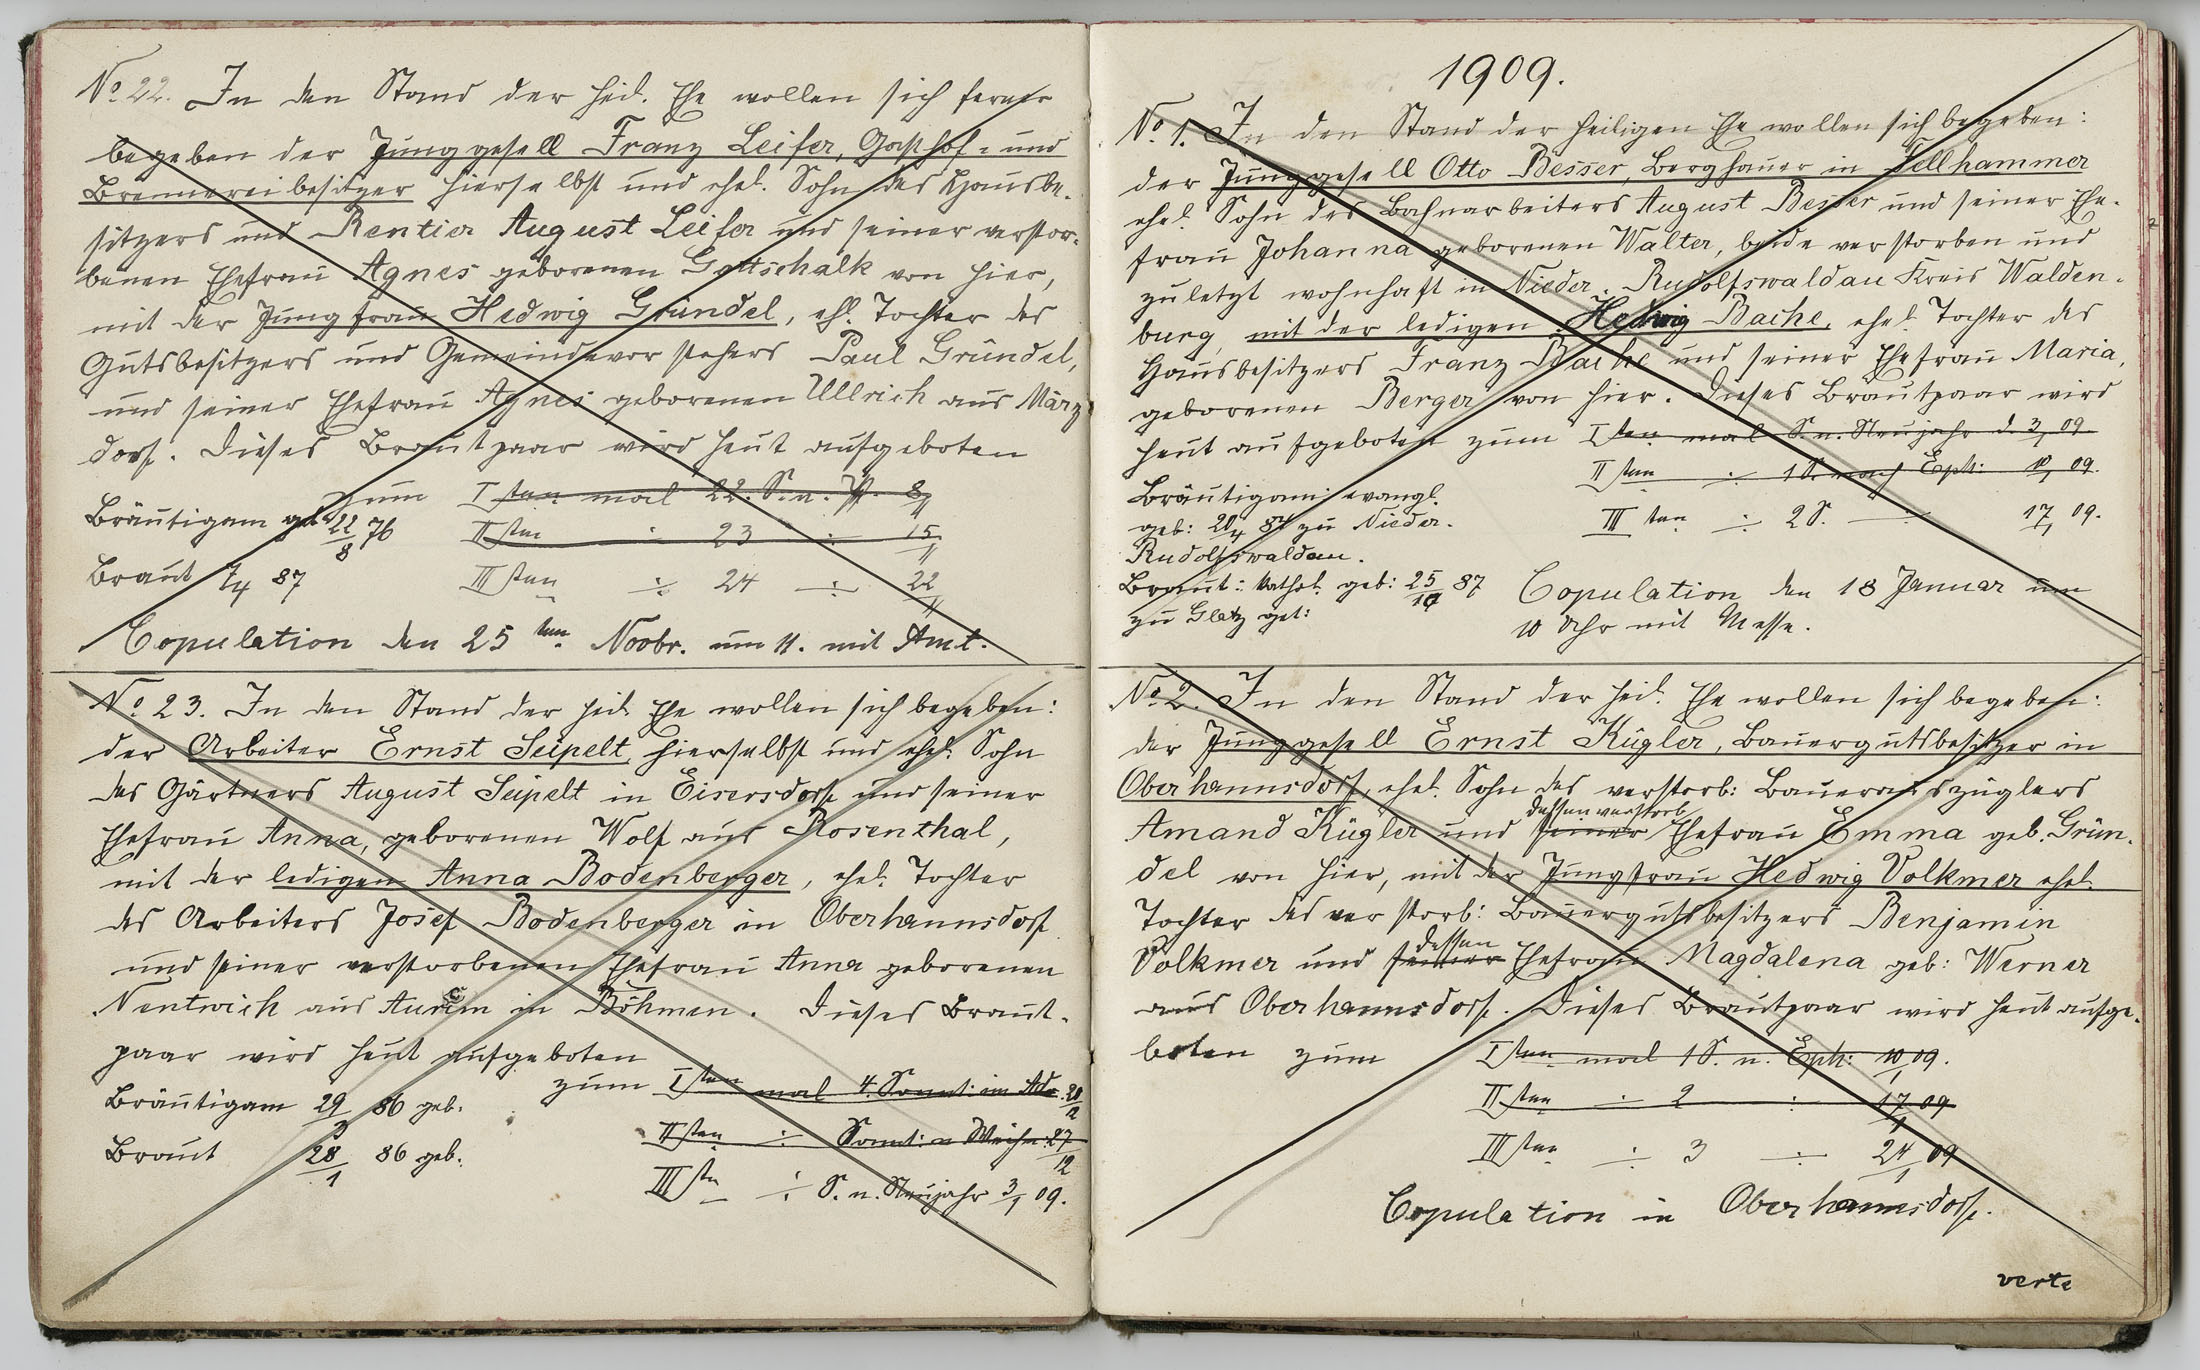 No 22. In den Stand der heil. Ehe wollen sich ferner
begeben der Junggesell Franz Leifer, Gasthof- und
Brennereibesitzer hierselbst und ehel. Sohn des Hausbe-
sitzers und Rentier August Leifer und seiner verstor-
benen Ehefrau Agnes geborenen Gottschalk von hier,
mit der Jungfrau Hedwig Gründel, ehl. Tochter des
Gutsbesitzers und Gemeindevorstehers Paul Gründel,
und seiner Ehefrau Agnes geborenen Ullrich aus März
dorf. Dieses Brautpaar wird heut aufgeboten
zum Iten mal 22. S. n. Pf. 8/11
Bräutigam geb. 22/8 76
IIten ÷ 23 ÷ 15/11
Braut 7/4 87
IIIten ÷ 24 ÷ 22/11
Copulation den 25ten Novbr. um 11. mit Amt.
No 23. In den Stand der heil. Ehe wollen sich begeben:
der Arbeiter Ernst Seipelt hierselbst und ehel. Sohn
des Gärtners August Seipelt in Eisersdorf und seiner
Ehefrau Anna, geborenen Wolf aus Rosenthal,
mit der ledigen Anna Bodenberger, ehel. Tochter
des Arbeiters Josef Bodenberger in Oberhannsdorf
und seiner verstorbenen Ehefrau Anna geborenen
Nentwich aus in Böhmen. Dieses Braut-
paar wird heut aufgeboten
zum Iten mal 4. Sonnt: im Adv. 20/12
Bräutigam 29/3 86 geb.
IIten ÷ Sonnt: n Weihn. 27/12
Braut 28/1 86 geb.
IIIten ÷ S. n. Neujahr 3/1 09.
1909.
No 1. In den Stand der heiligen Ehe wollen sich begeben:
der Junggesell Otto Besser, Berghauer in Fellhammer
ehel. Sohn des Bahnarbeiters August Besser und seiner Ehe-
frau Johanna geborenen Walter, beide verstorben und
zuletzt wohnhaft in Nieder-Rudolfswaldau Kreis Walden-
burg, mit der ledigen Hedwig Bache, ehel. Tochter des
Hausbesitzers Franz Bache und seiner Ehefrau Maria,
geborenen Berger von hier. Dieses Brautpaar wird
heut aufgeboten zum Iten mal S. n. Neujahr d. 3/1 09
IIten ÷ 1 S. nach Eph: 10/1 09.
Bräutigam: evangl.
geb: 20/4 84 zu Nieder-
Rudolfswaldau.
IIIten ÷ 2 S. ÷ 17/1 09.
Braut: kathol. geb: 25/10 87
zu Glatz get:
Copulation den 18 Januar um
10 Uhr mit Messe.
No 2. In den Stand der heil. Ehe wollen sich begeben:
der Junggesell Ernst Kügler, Bauergutsbesitzer in
Oberhannsdorf, ehel. Sohn des verstorb: Bauerauszüglers
dessen verstorb
Amand Kügler und seiner Ehefrau Emma geb. Grün-
del von hier, mit der Jungfrau Hedwig Volkmer ehel.
Tochter des verstorb: Bauergutsbesitzers Benjamin
dessen
Volkmer und seiner Ehefrau Magdalena geb: Werner
aus Oberhannsdorf. Dieses Brautpaar wird heut aufge-
boten zum Iten mal 1 S. n. Eph: 10/1 09.
IIten ÷ 2 ÷ 17/1 09
IIIten ÷ 3 ÷ 24/1 09
Copulation in Oberhannsdorf.
verte